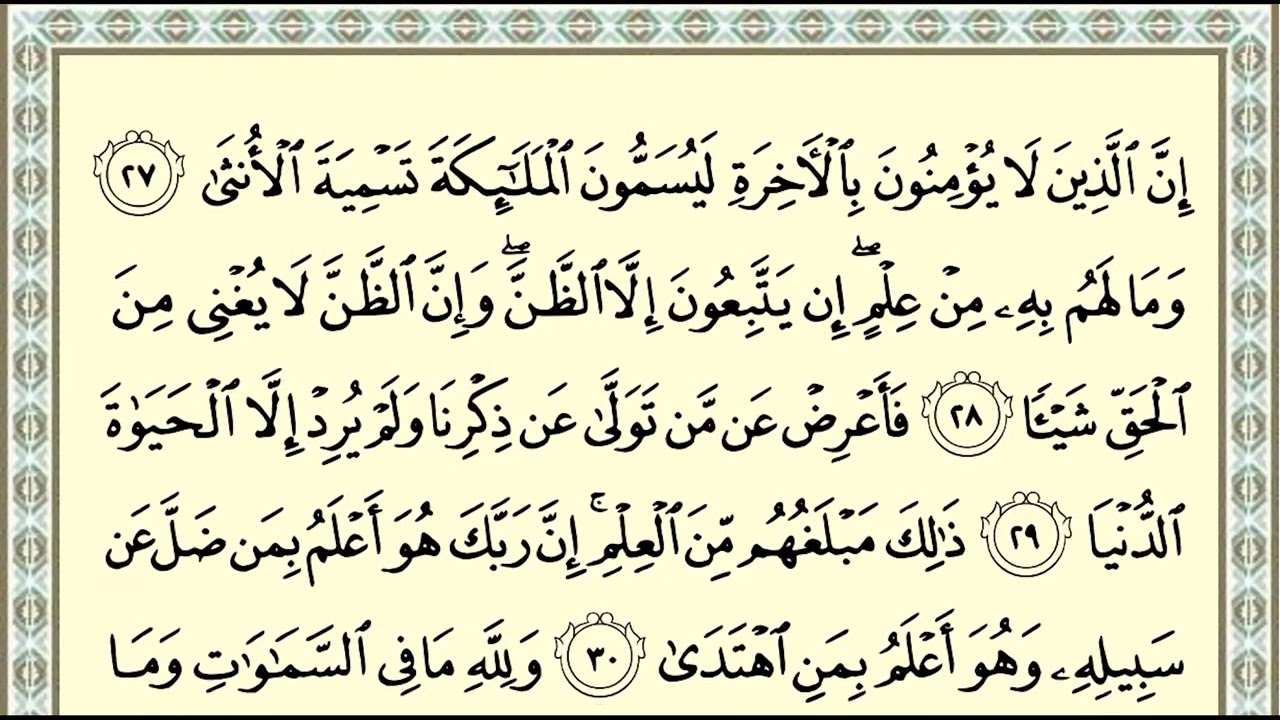 إِنَّ ٱلَّذِينَ لَا يُؤْمِنُونَ بِٱلْأَخِرَةِ لَيُسَمُّونَ ٱلْمَلَٰٓئِكَةَ تَسْمِيَةَ ٱلْأُنثَىٰ ٢٧
وَمَا لَهُم بِهِۦ مِنْ عِلْمٍ ۖ إِن يَتَّبِعُونَ إِلَّا ٱلظَّنَّ ۖ وَإِنَّ ٱلظَّنَّ لَا يُغْنِى مِنَ
ٱلْحَقِّ شَيْـًٔا ٢٨ فَأَعْرِضْ عَن مَّن تَوَلَّىٰ عَن ذِكْرِنَا وَلَمْ يُرِدْ إِلَّا ٱلْحَيَوٰةَ
ٱلدُّنْيَا ٢٩ ذَٰلِكَ مَبْلَغُهُم مِّنَ ٱلْعِلْمِ ۚ إِنَّ رَبَّكَ هُوَ أَعْلَمُ بِمَن ضَلَّ عَن
سَبِيلِهِۦ وَهُوَ أَعْلَمُ بِمَنِ ٱهْتَدَىٰ ٣٠ وَلِلَّهِ مَا فِى ٱلسَّمَٰوَٰتِ وَمَا